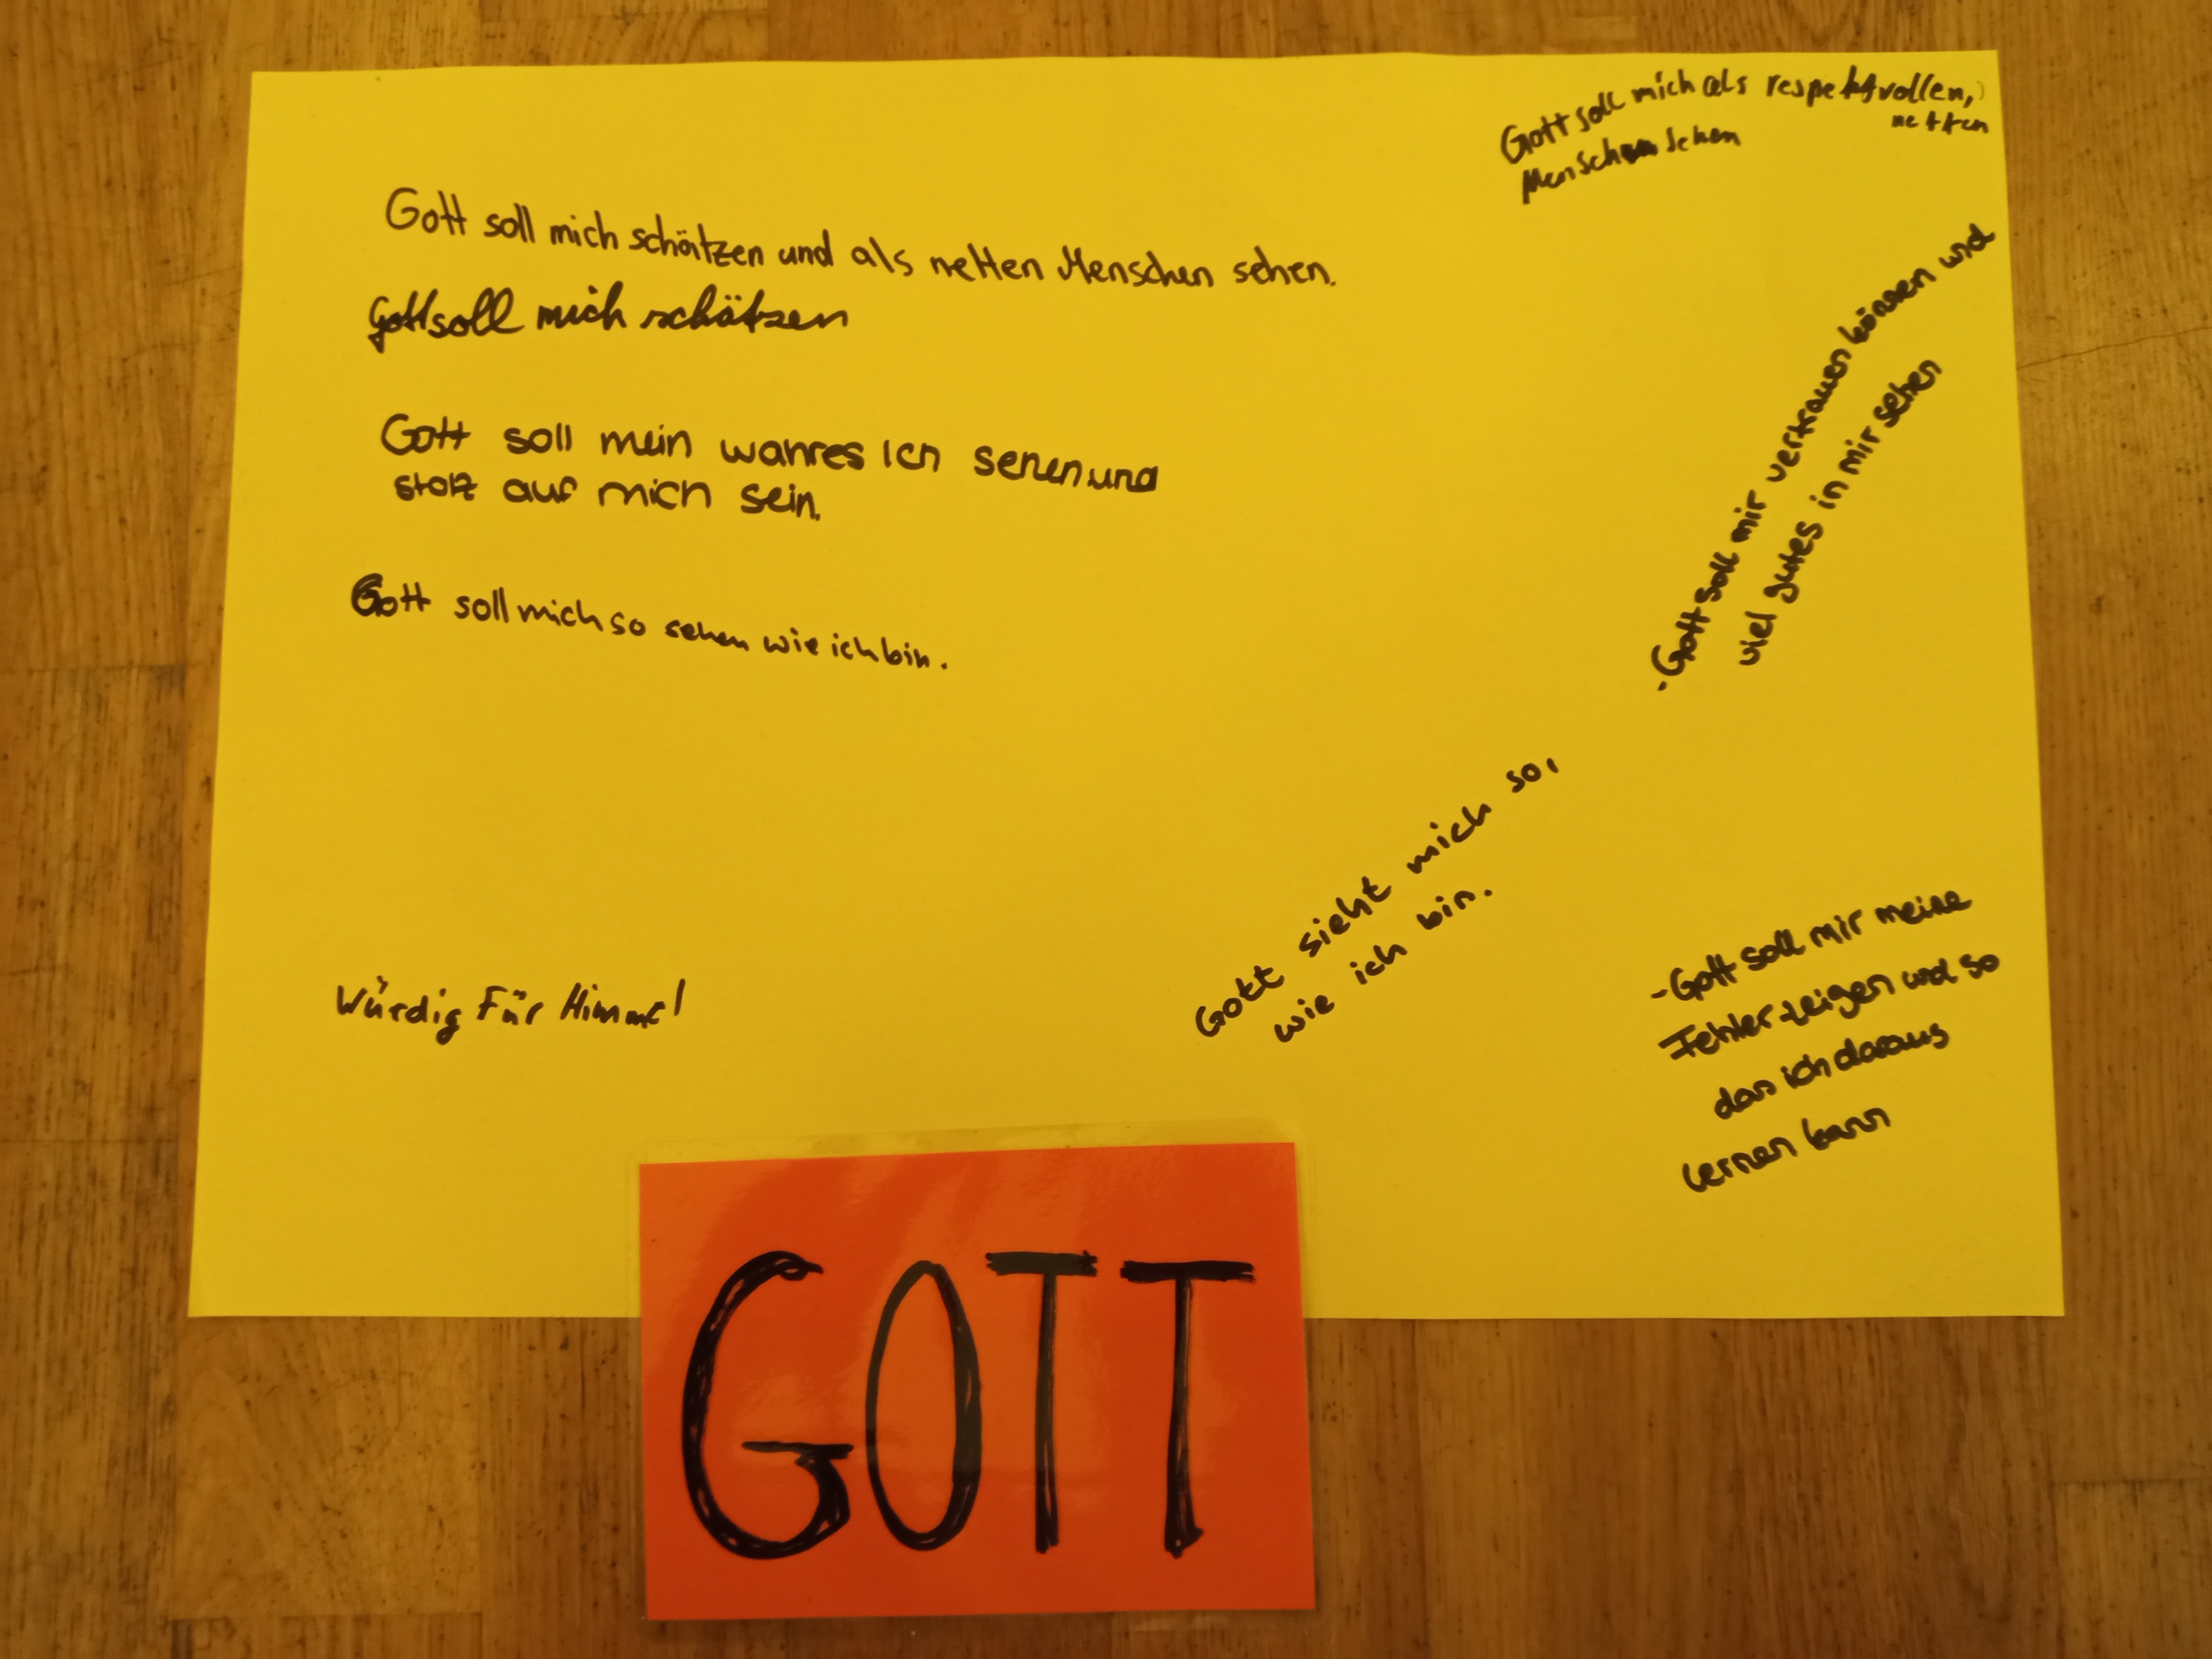 Gott soll mich schätzen und als netten Menschen sehen.
Gott soll mich schätzen
Gott soll mein wahres Ich sehen und
stolz auf mich sein.
Gott soll mich so sehen wie ich bin.
Würdig Für Himmel
Gott soll mich als respektvollen,
netten
Menschen sehen
-Gott soll mir vertrauen können und
viel gutes in mir sehen
Gott sieht mich so,
wie ich bin.
-Gott soll mir meine
Fehler zeigen und so
das ich daraus
lernen kann
GOTT